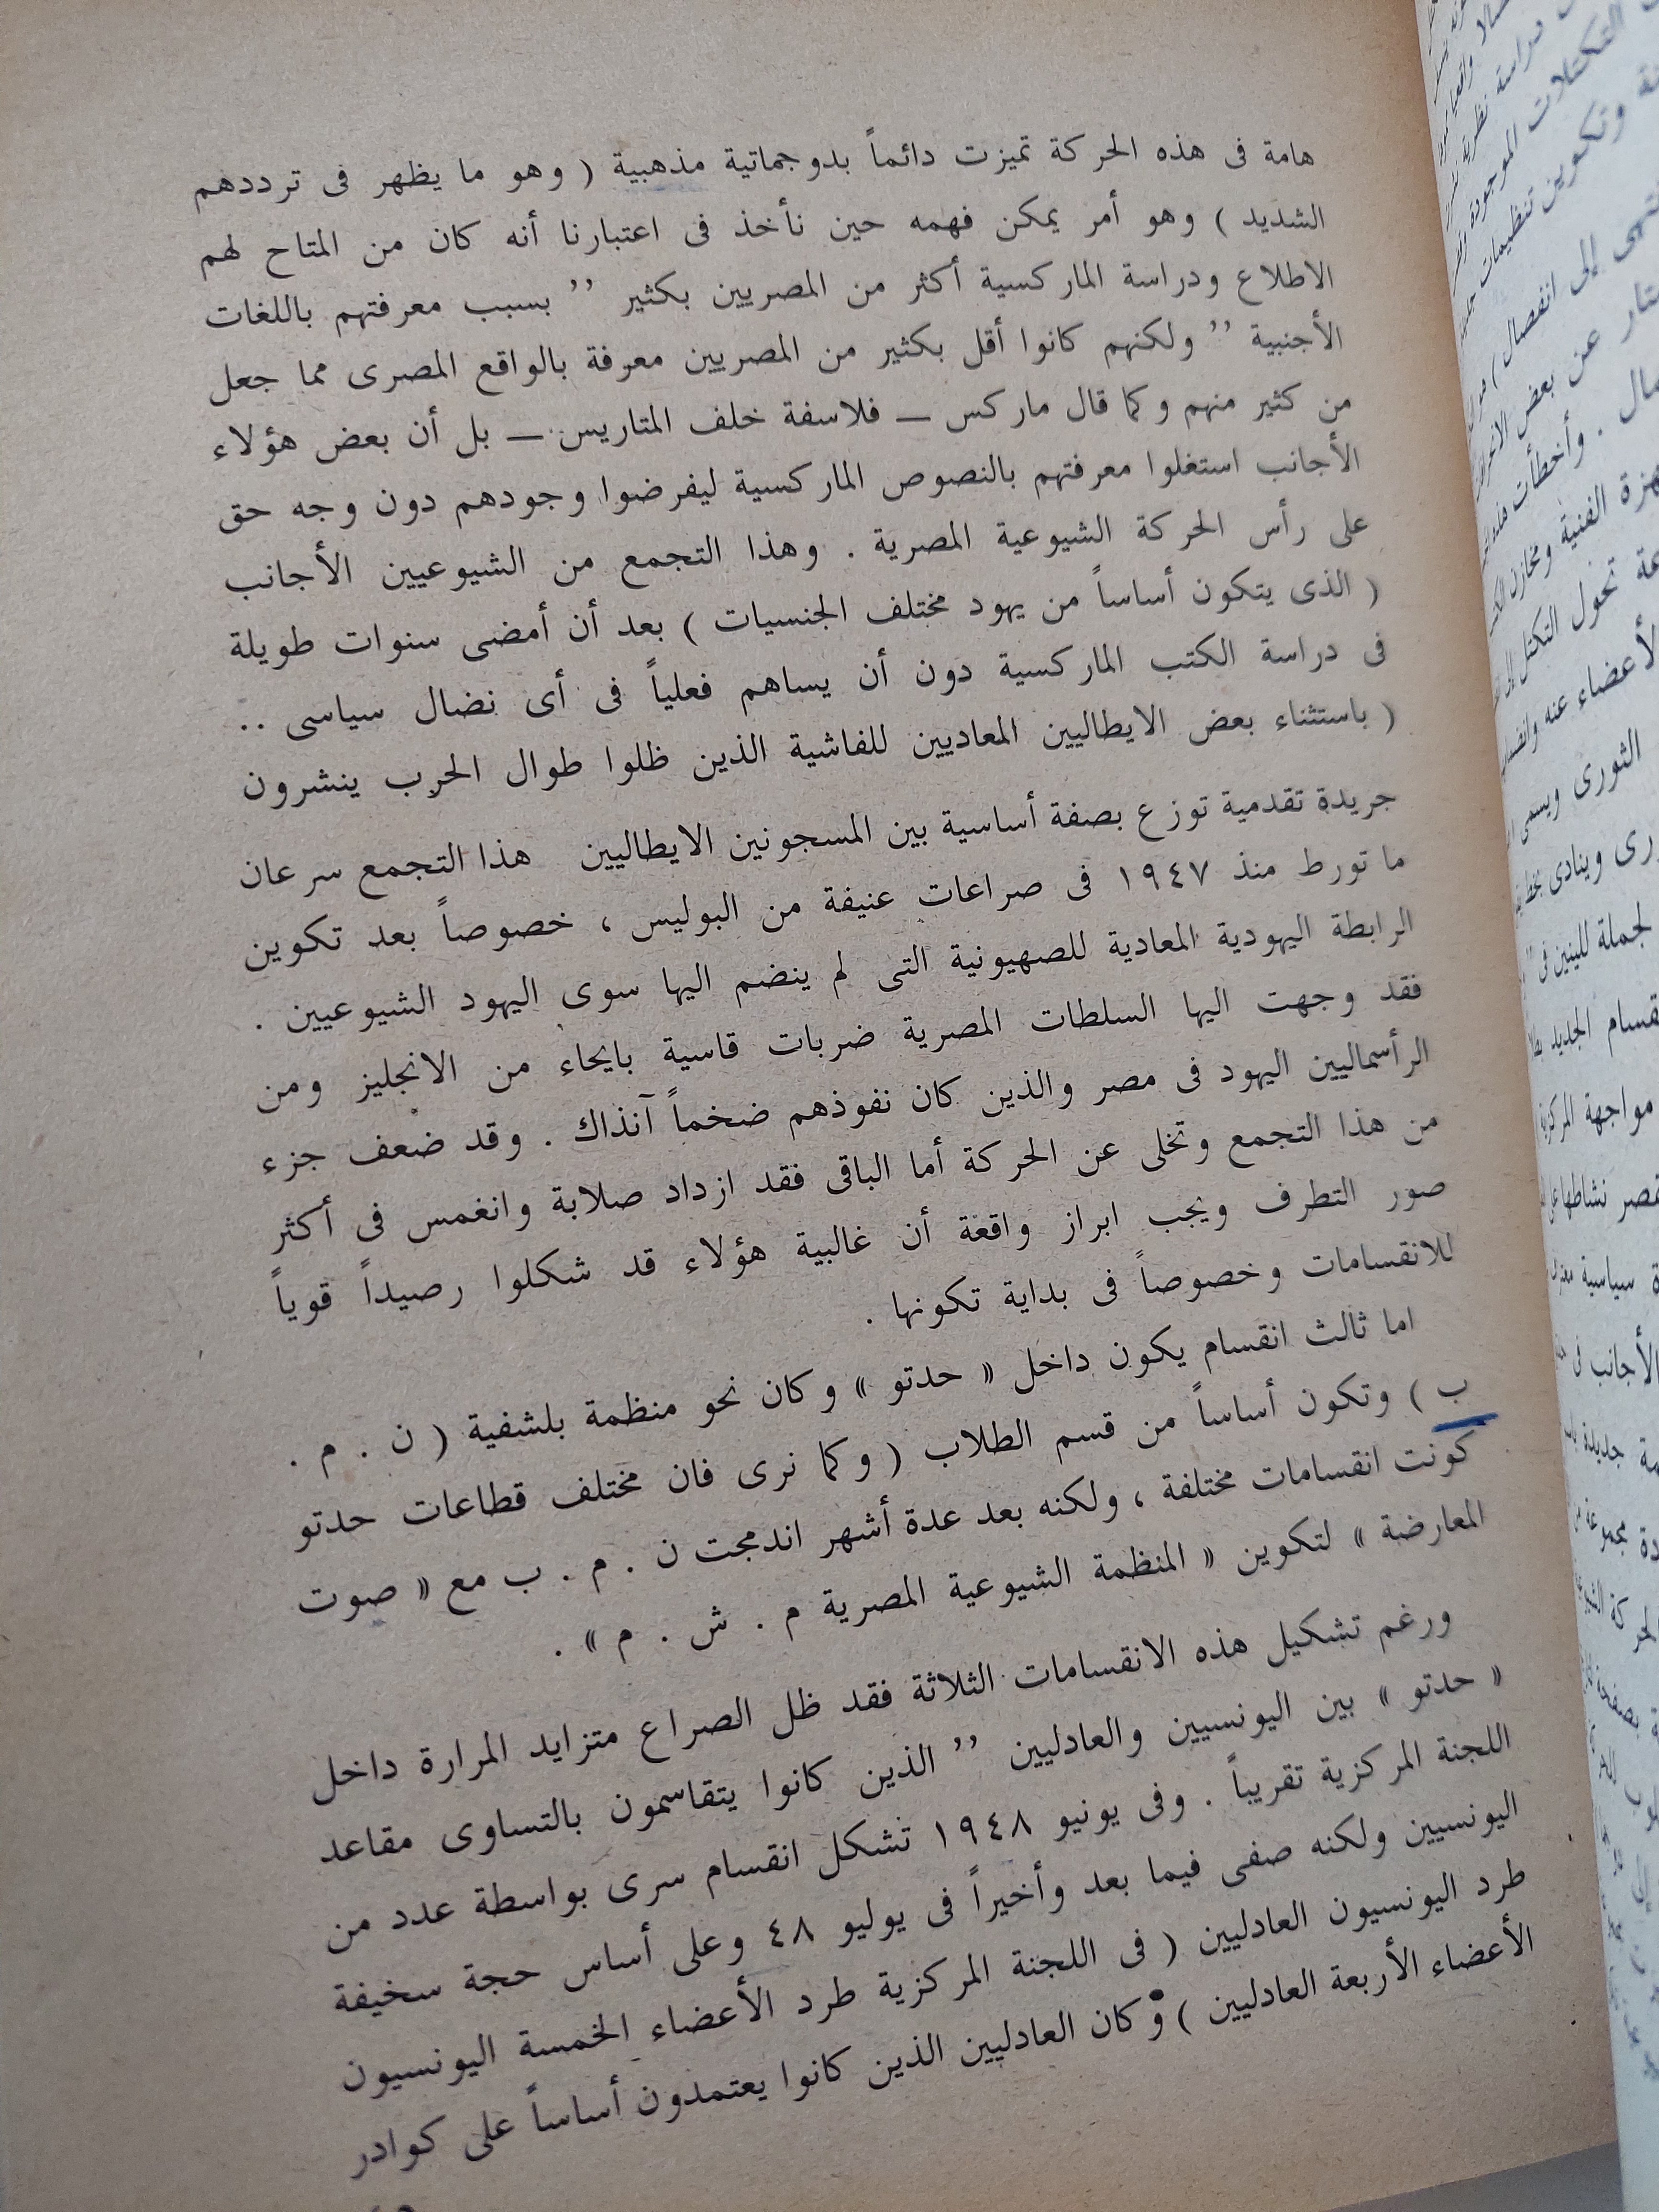 هامة فى هذه الحركة تميزت دائماً بدوجماتية مذهبية ( وهو ما يظهر فى ترددهم
الشديد ) وهو أمر يمكن فهمه حين نأخذ فى اعتبارنا أنه كان من المتاح لهم
الاطلاع ودراسة الماركسية أكثر من المصريين بكثير ’’ بسبب معرفتهم باللغات
الأجنبية ’’ ولكنهم كانوا أقل بكثير من المصريين معرفة بالواقع المصرى مما جعل
من كثير منهم وكما قال ماركس ـــ فلاسفة خلف المتاريس ـــ بل أن بعض هؤلاء
الأجانب استغلوا معرفتهم بالنصوص الماركسية ليفرضوا وجودهم دون وجه حق
على رأس الحركة الشيوعية المصرية . وهذا التجمع من الشيوعيين الأجانب
( الذى يتكون أساساً من يهود مختلف الجنسيات ) بعد أن أمضى سنوات طويلة
فى دراسة الكتب الماركسية دون أن يساهم فعلياً فى أى نضال سياسى ..
( باستثناء بعض الايطاليين المعاديين للفاشية الذين ظلوا طوال الحرب ينشرون
جريدة تقدمية توزع بصفة أساسية بين المسجونين الايطاليين هذا التجمع سرعان
ما تورط منذ ١٩٤٧ فى صراعات عنيفة من البوليس ، خصوصاً بعد تكوين
الرابطة اليهودية المعادية للصهيونية التى لم ينضم اليها سوى اليهود الشيوعيين .
فقد وجهت اليها السلطات المصرية ضربات قاسية بايحاء من الانجليز ومن
الرأسماليين اليهود فى مصر والذين كان نفوذهم ضخماً آنذاك . وقد ضعف جزء
من هذا التجمع وتخلى عن الحركة أما الباقى فقد ازداد صلابة وانغمس فى أكثر
صور التطرف ويجب ابراز واقعة أن غالبية هؤلاء قد شكلوا رصيداً قوياً
للانقسامات وخصوصاً فى بداية تكونها .
اما ثالث انقسام يكون داخل « حدتو » وكان نحو منظمة بلشفية ( ن . م .
ب ) وتكون أساساً من قسم الطلاب ( وكما نرى فان مختلف قطاعات حدتو
كونت انقسامات مختلفة ، ولكنه بعد عدة أشهر اندمجت ن . م . ب مع « صوت
المعارضة » لتكوين « المنظمة الشيوعية المصرية م . ش . م » .
ورغم تشكيل هذه الانقسامات الثلاثة فقد ظل الصراع متزايد المرارة داخل
« حدتو » بين اليونسيين والعادليين ’’ الذين كانوا يتقاسمون بالتساوى مقاعد
اللجنة المركزية تقريباً . وفى يونيو ١٩٤٨ تشكل انقسام سرى بواسطة عدد من
اليونسيين ولكنه صفى فيما بعد وأخيراً فى يوليو ٤٨ وعلى أساس حجة سخيفة
طرد اليونسيون العادليين ( فى اللجنة المركزية طرد الأعضاء الخمسة اليونسيون
الأعضاء الأربعة العادليين ) وكان العادليين الذين كانوا يعتمدون أساساً على كوادر